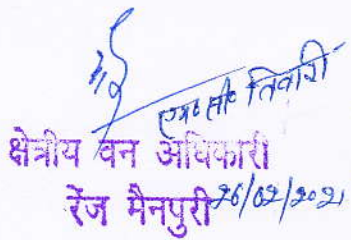 एम० सी० तिवारी
क्षेत्रीय वन अधिकारी
रेंज मैनपुरी 26/02/2021